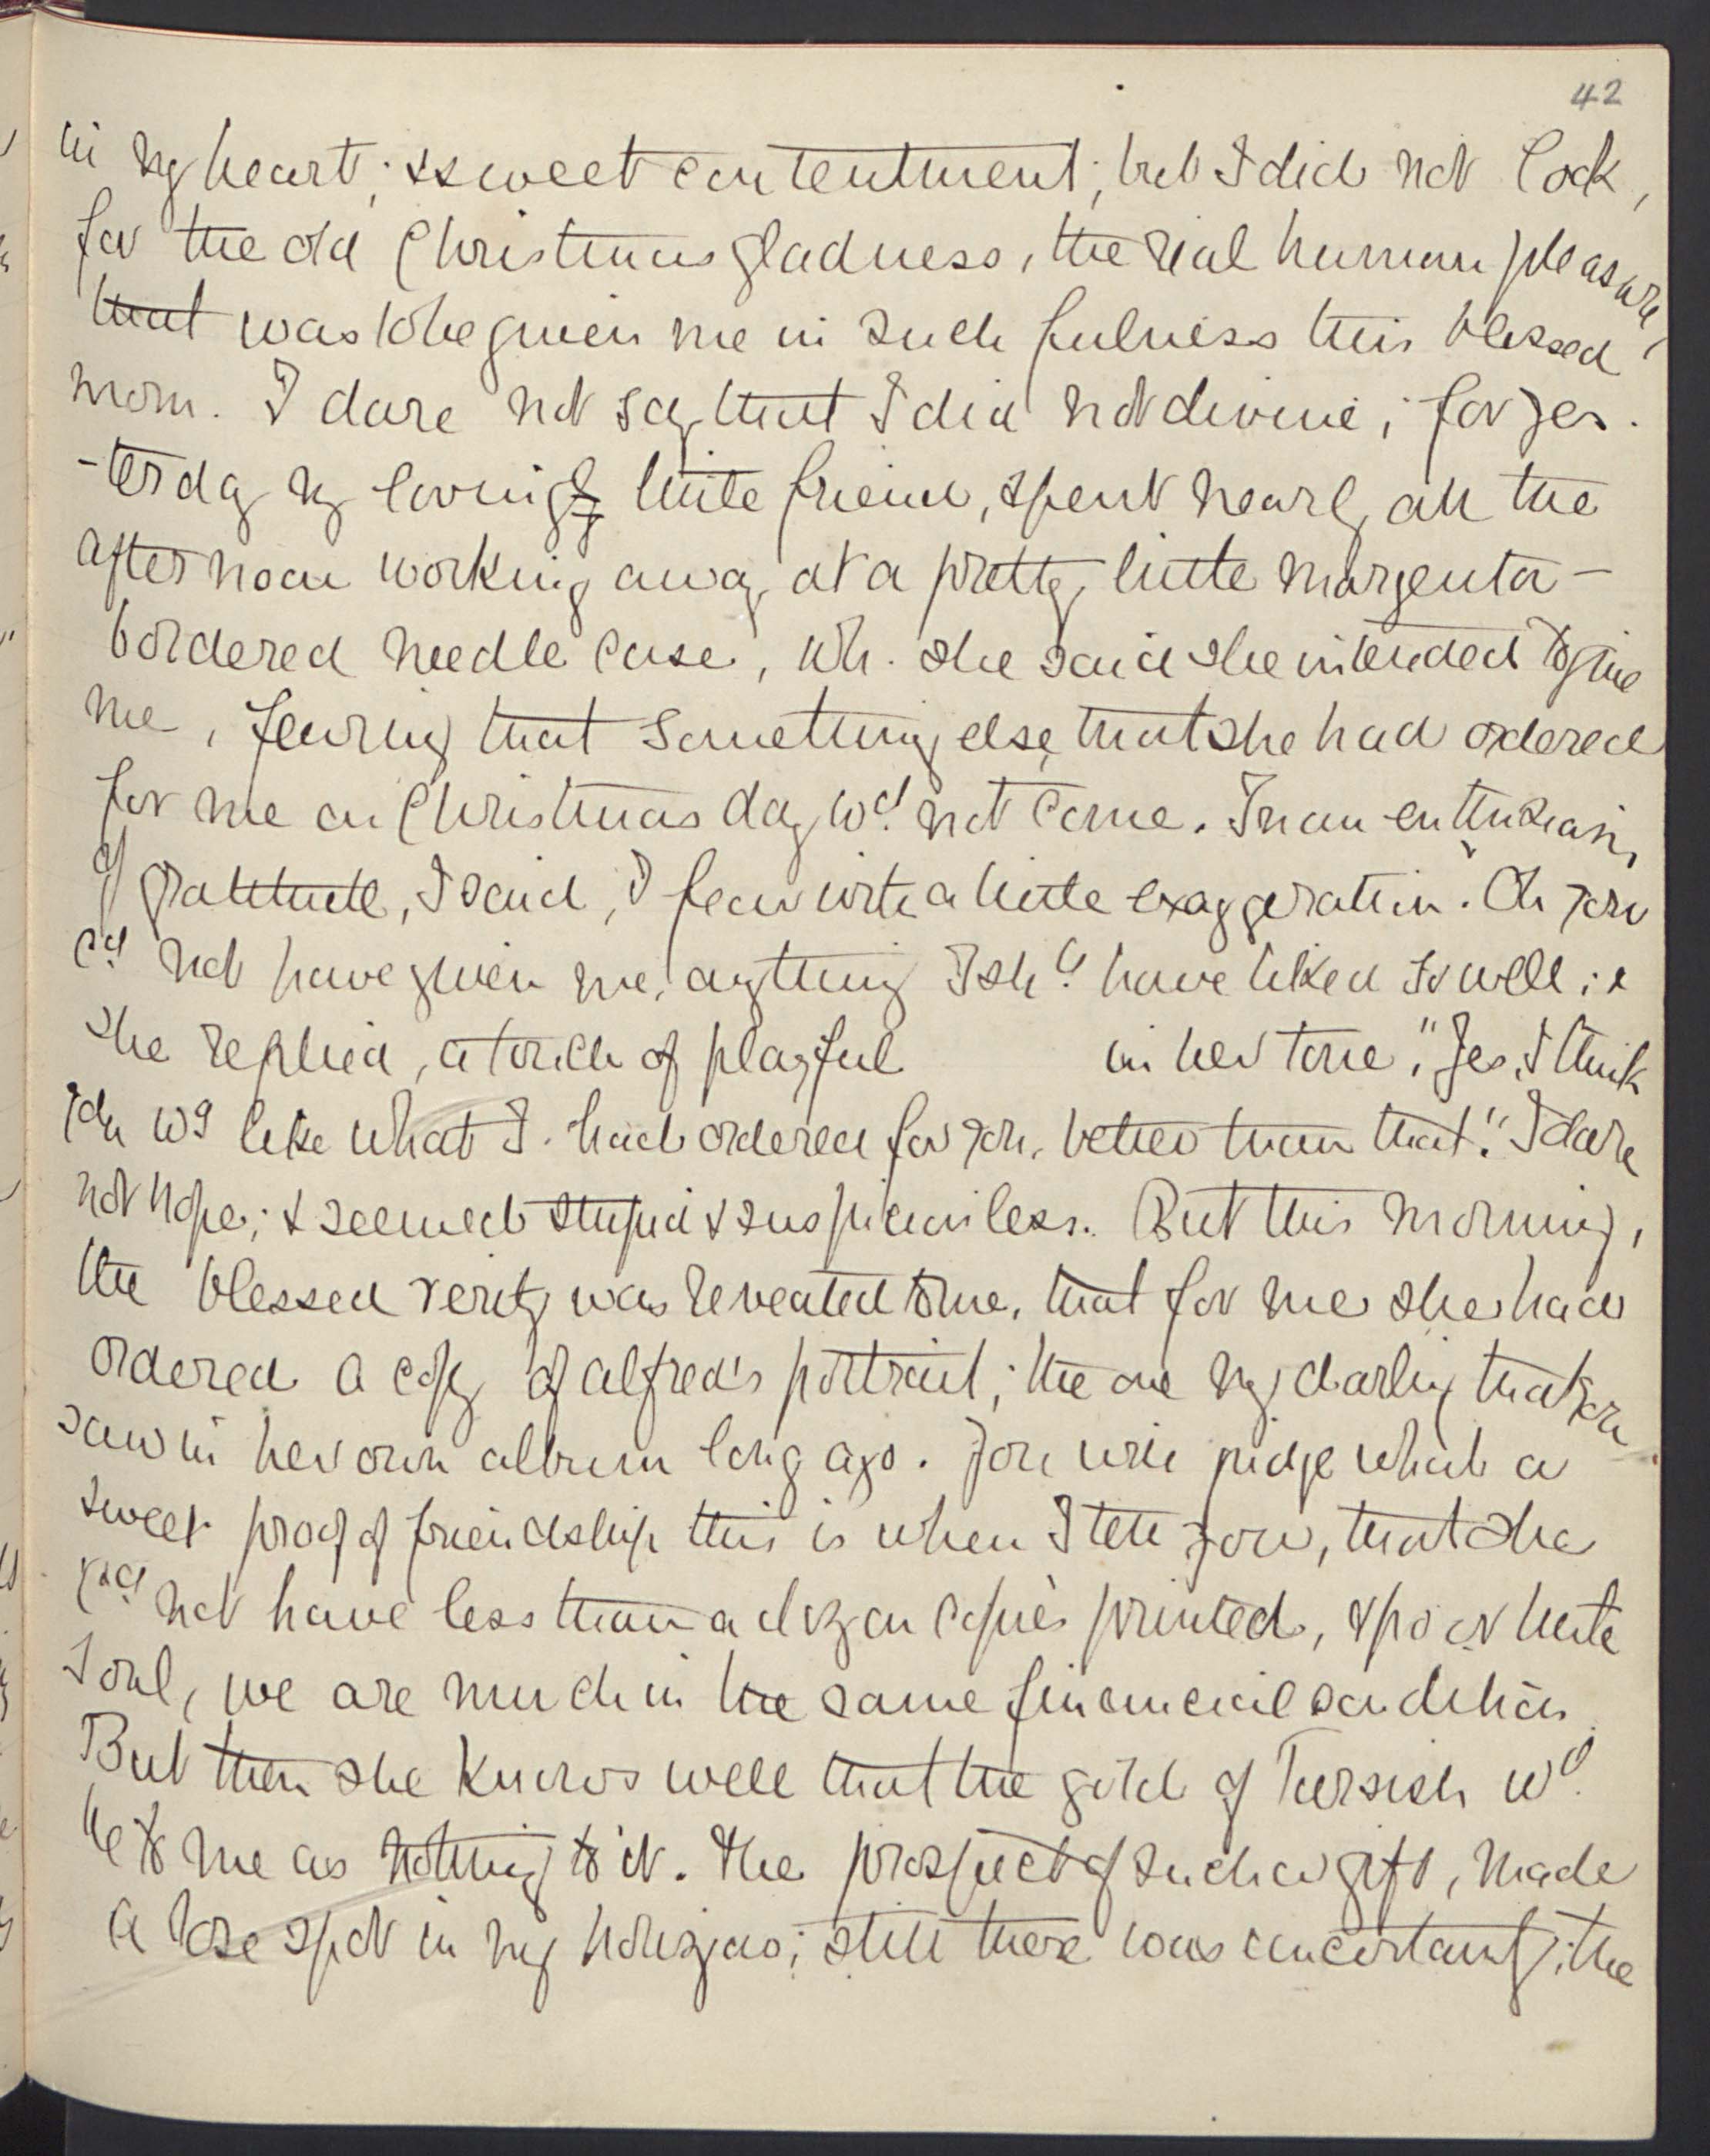 42
in my heart; & sweet contentment; but I did not look,
for the old Christmas gladness, the real human pleasure,
that was to be given me in such fulness this blessed
morn. I dare not say that I did not divine; for yes-
-terday my loving little friend, spent nearly all the
afternoon working away at a pretty little margenta-
bordered needle case, wh. she said she intended to give
me, fearing that something else that she had ordered
for me on Christmas day wd. not come. In an enthusiasm
of gratitude, I said, I fear with a little exaggeration. "Oh you
cd. not have given me, anything I shd. have liked so well; &
she replied, a touch of playful in her tone, "Yes, I think
you wd like what I had ordered for you, better than that." I dare
not hope; & seemed stupid & suspicionless. But this morning,
the blessed verity was revealed to me, that for me she had
ordered a copy of Alfred's portrait; the one my darling that you
saw in her own album long ago. You will judge what a
sweet proof of friendship this is when I tell you, that she
cd. not have less than a dozen copies printed, & poor little
soul, we are much in the same financial condition.
But then she knows well that the gold of Tarsish wd.
be to me as nothing to it. The prospect of such a gift, made
a rose spot in my horizon; still there was uncertainty; the